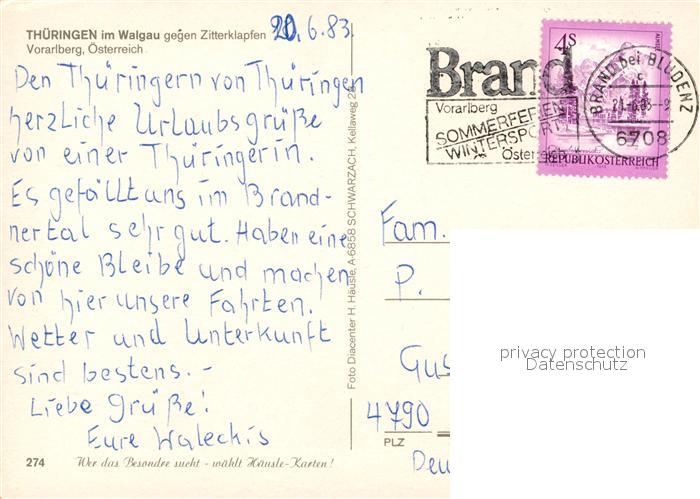 THÜRINGEN im Walgau gegen Zitterklapfen
Vorarlberg, Österreich
20.6.83
Den Thüringern von Thüringen
herzliche Urlaubsgrüße
von einer Thüringerin.
Es gefällt uns im Brand-
nertal sehr gut. Haben eine
schöne Bleibe und machen
von hier unsere Fahrten.
Wetter und Unterkunft
sind bestens. -
Liebe Grüße!
Eure Waleckis
274
Wer das Besondre sucht - wählt Häusle-Karten!
Foto Diacenter H. Häusle, A-6858 SCHWARZACH, Kellaweg
Brand
Vorarlberg
SOMMERFERIEN
WINTERSPORT
Österreich
4S
REPUBLIK ÖSTERREICH
BRAND bei BLUDENZ
6708
Fam.
P.
Gus
4790
PLZ
Deu
privacy protection
Datenschutz